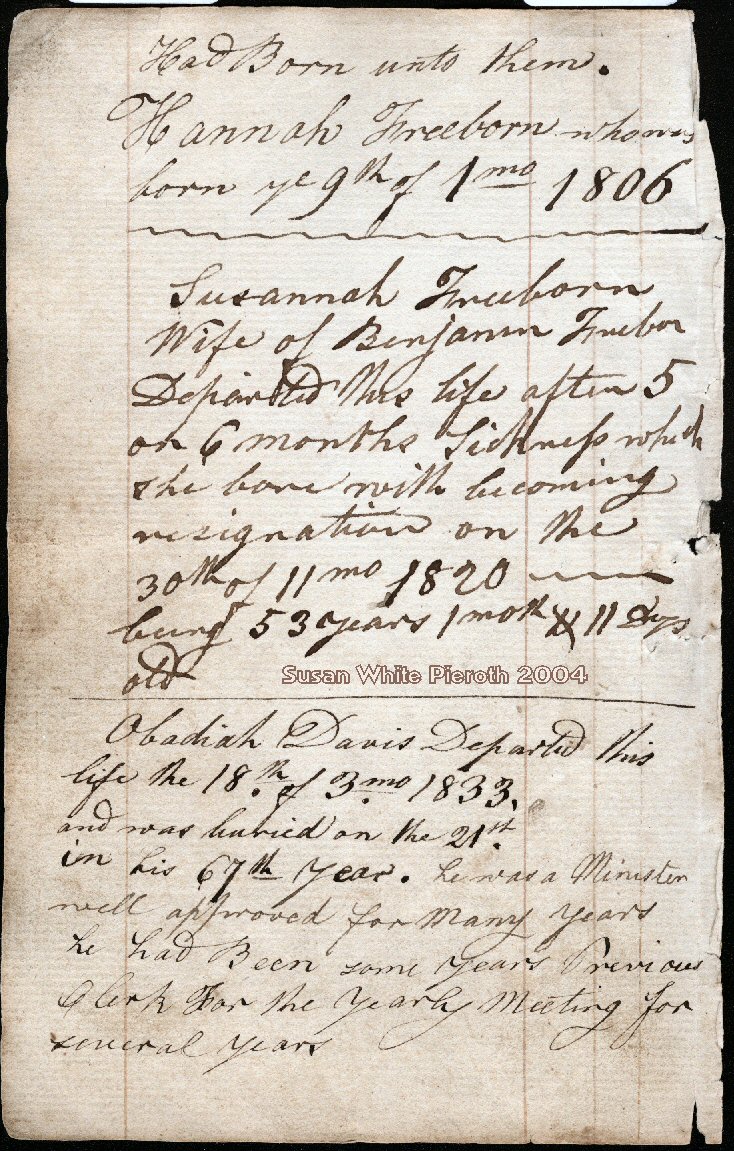 Had Born unto them.
Hannah Freeborn who was
born ye 9th of 1mo 1806
Susannah Freeborn
Wife of Benjamin Freebor
Departed this life after 5
or 6 months Sickness which
she bore with becoming
resignation on the
30th of 11mo 1820
being 53 years 1 moth & 11 Days
old
Susan White Pieroth 2004
Obadiah Davis Departed this
life the 18.th of 3.mo 1833.
and was buried on the 21.st
in his 67th Year. he was a Minister
well approved for Many Years
he had Been some years Previous
Clerk For the Yearly Meeting for
several years